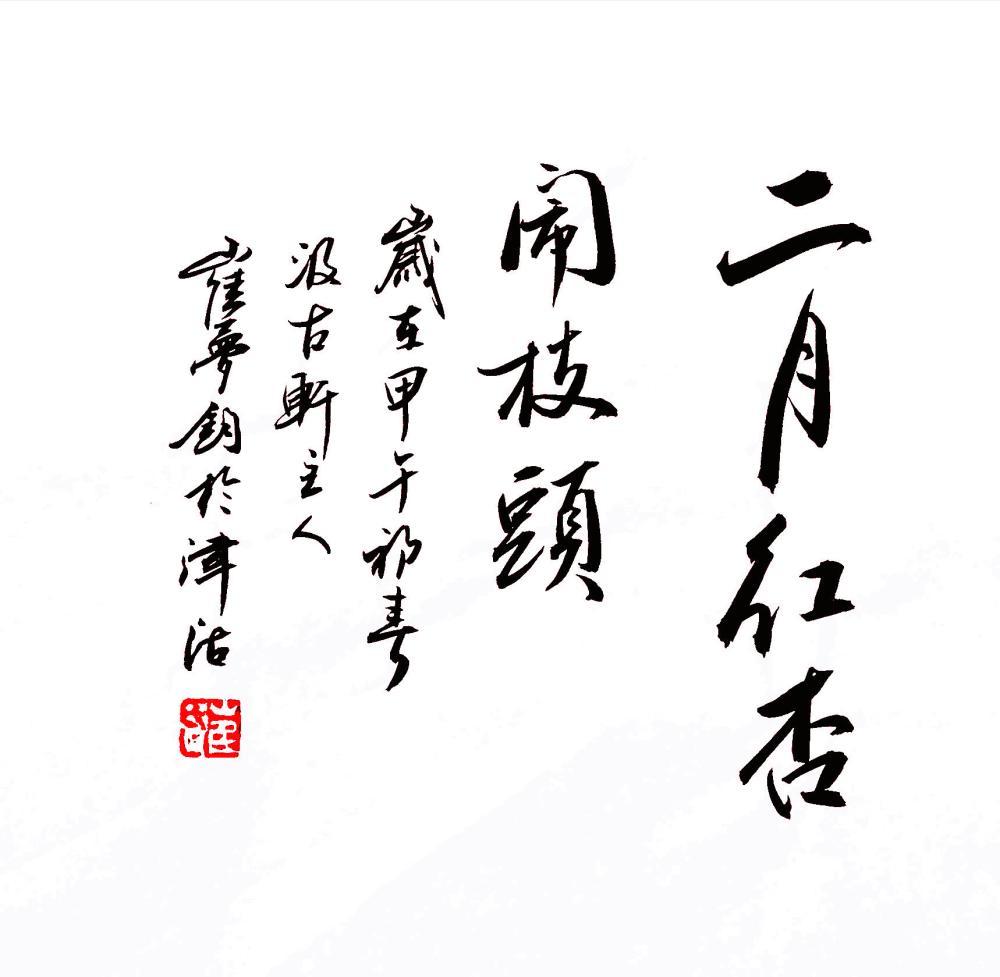 二月红杏
闹枝頭
歲在甲午初春
汲古軒主人
崔夢鈞於津沽